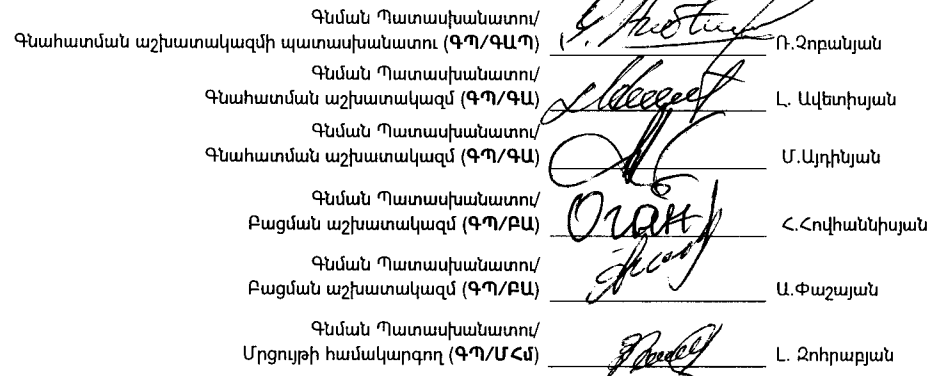 Գնման Պատասխանատու/
Գնահատման աշխատակազմի պատասխանատու (ԳՊ/ԳԱՊ) Ռ.Չոբանյան
Գնման Պատասխանատու/
Գնահատման աշխատակազմ (ԳՊ/ԳԱ) Լ. Ավետիսյան
Գնման Պատասխանատու/
Գնահատման աշխատակազմ (ԳՊ/ԳԱ) Մ.Այդինյան
Գնման Պատասխանատու/
Բացման աշխատակազմ (ԳՊ/ԲԱ) Оган Հ.Հովհաննիսյան
Գնման Պատասխանատու/
Բացման աշխատակազմ (ԳՊ/ԲԱ) Ա.Փաշայան
Գնման Պատասխանատու/
Մրցույթի համակարգող (ԳՊ/ՄՀմ) Լ. Զոհրաբյան